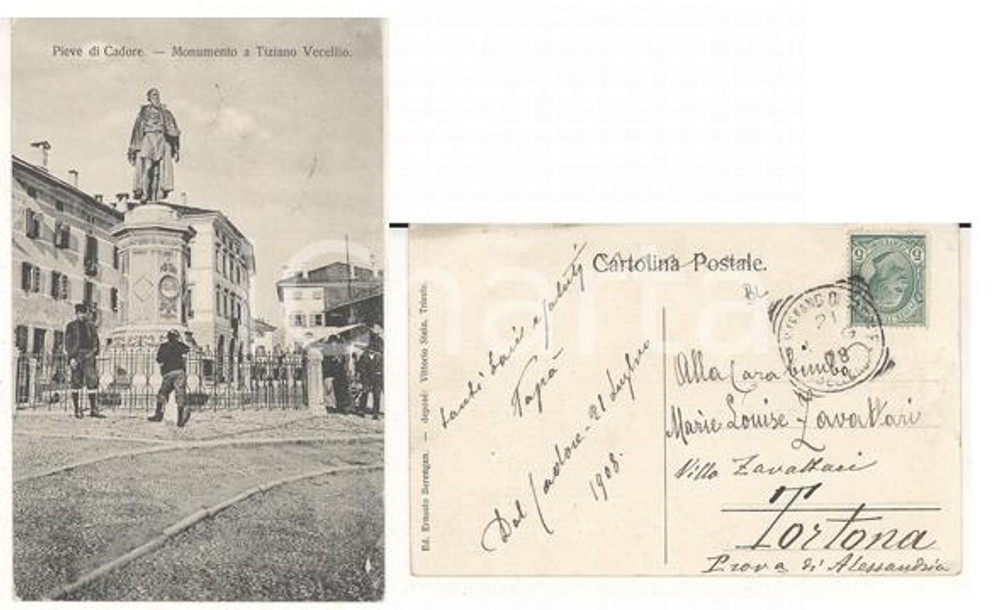 Pieve di Cadore. — Monumento a Tiziano Vecellio.
Cartolina Postale.
BL
Ed. Ernesto Berengan. — deposé: Vittorio Stein, Trieste.
tanti baci e saluti
Papà
Dal Cadore - 21 Luglio
1908.
Alla Cara bimba
Marie Louise Zavattari
Villa Zavattari
Tortona
Prova di Alessandria